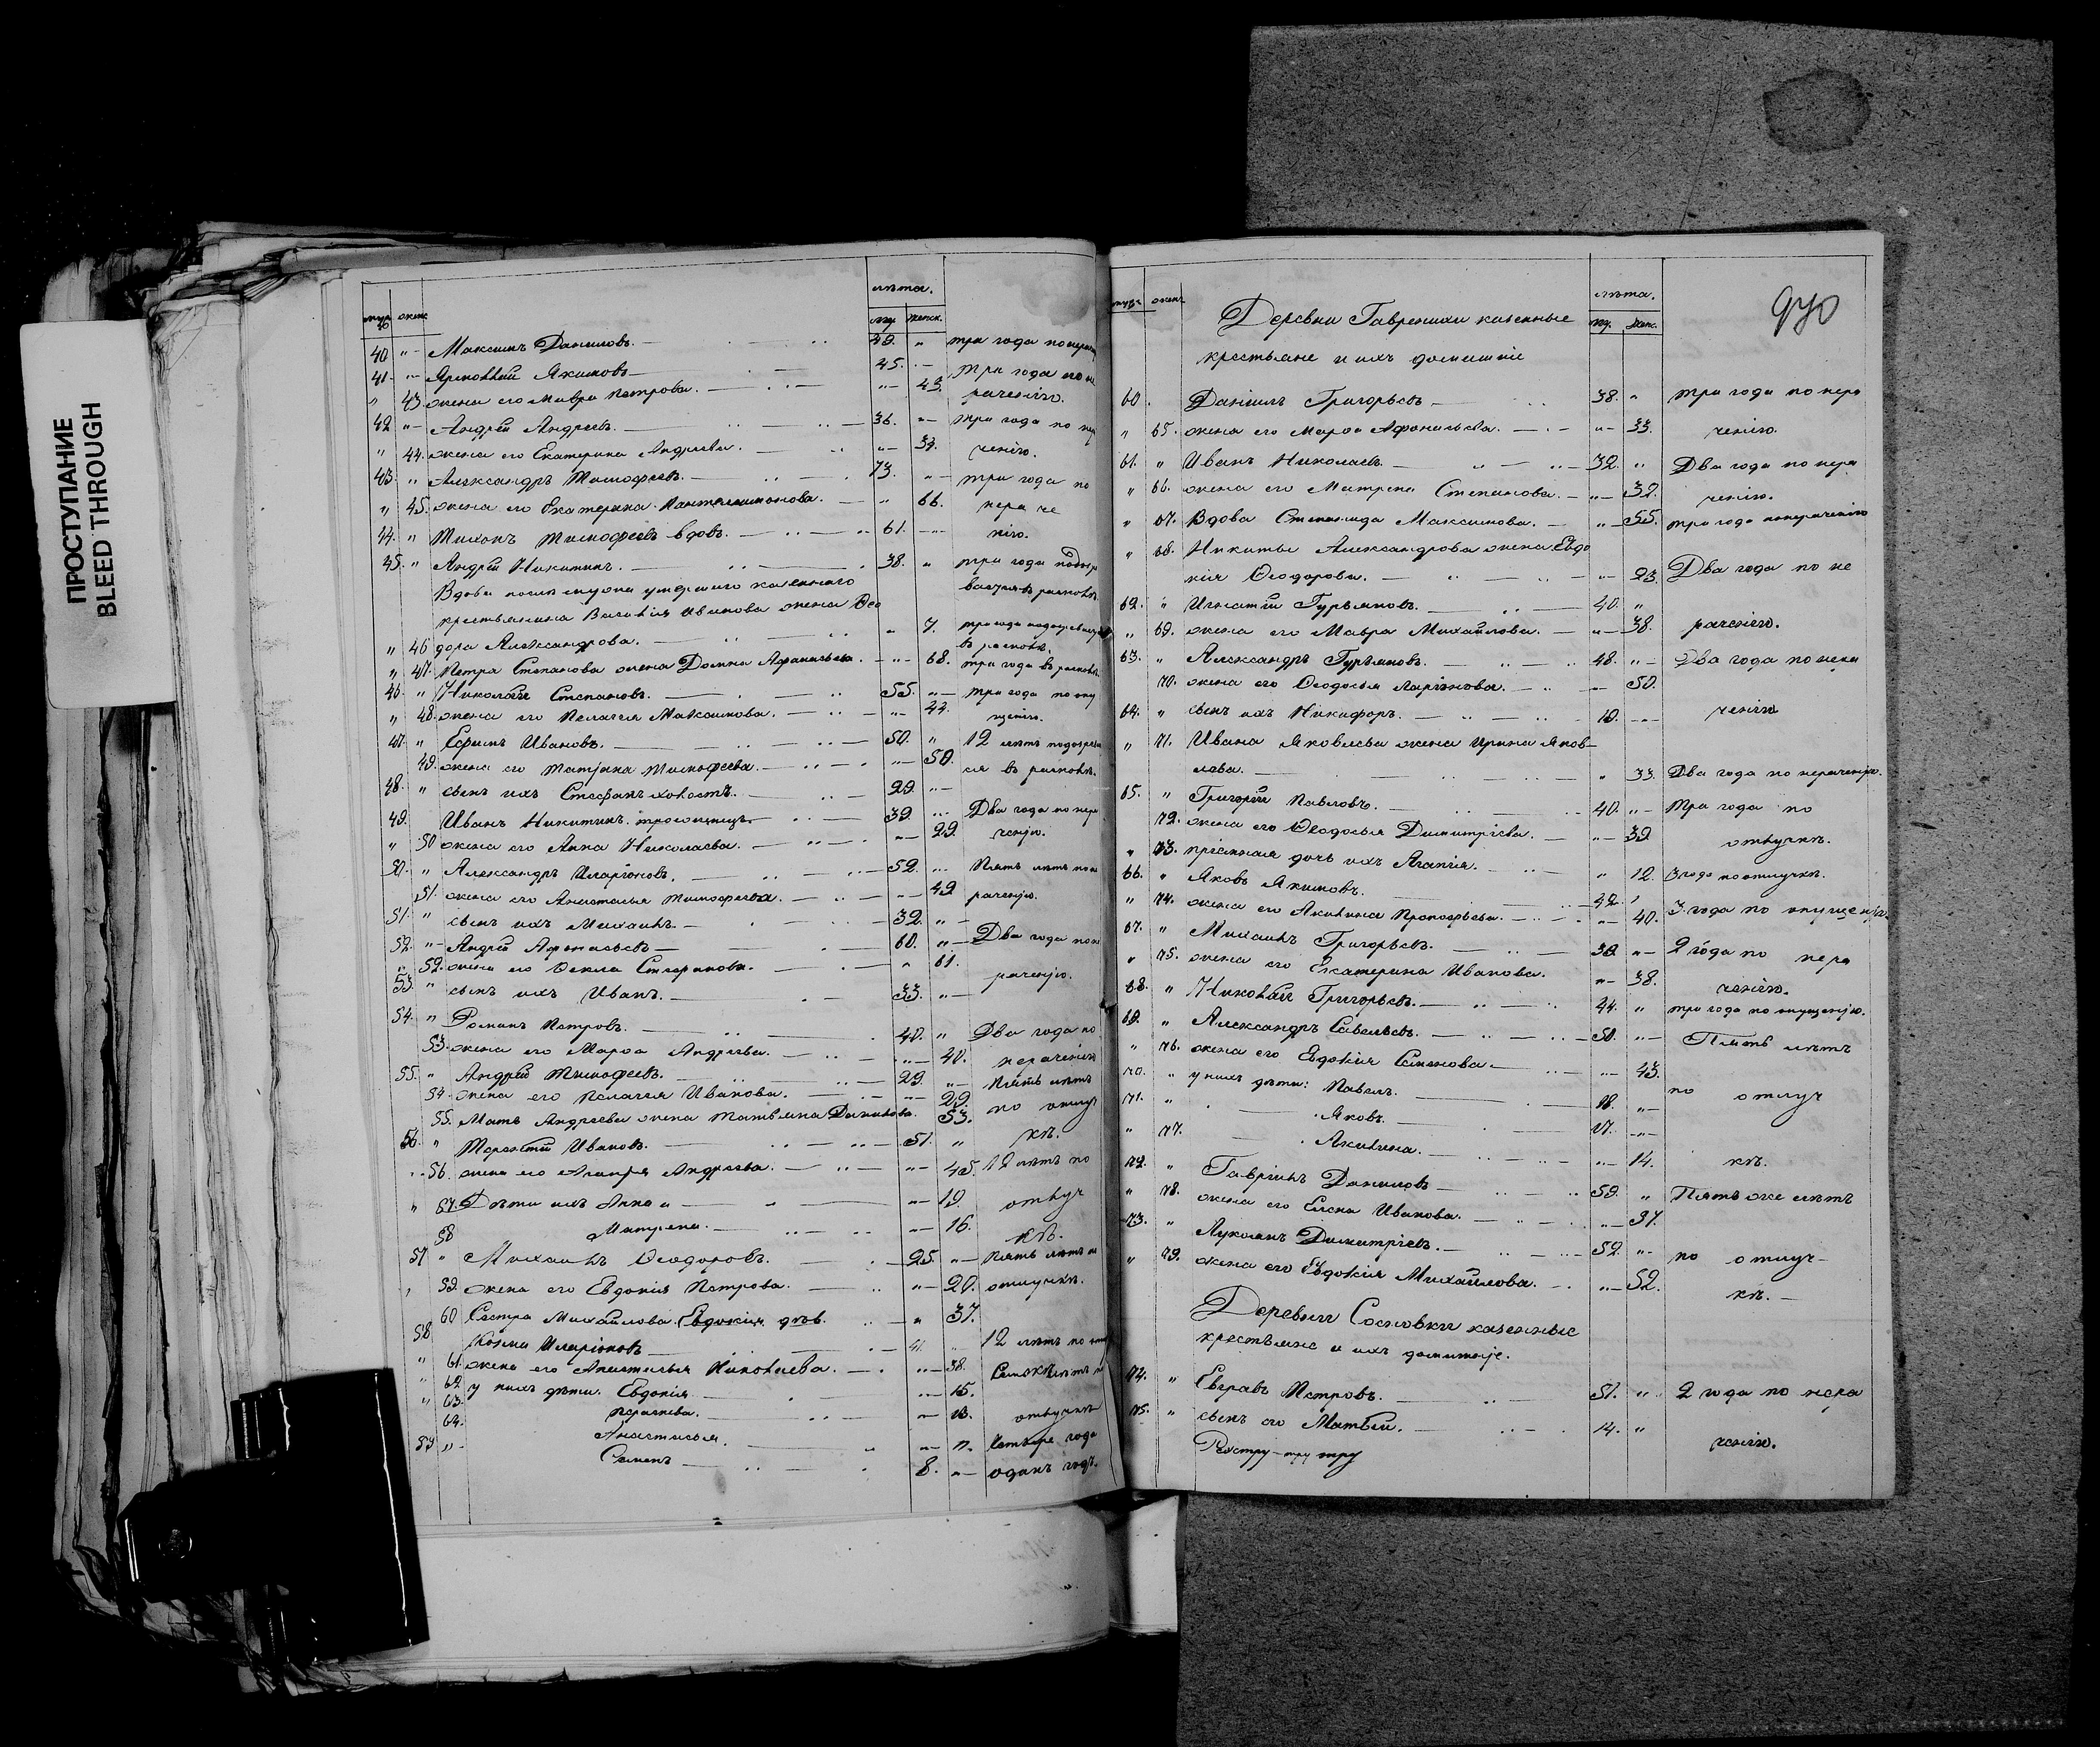 ПРОСТУПАНИЕ
BLEED THROUGH
лѣта.
муж женс му. женск.
40 " Максимъ Даниловъ. 49. " три года по нерач
41. " Артемій Якимовъ 45. три года по не
" 43. жена его Мавра Петрова. " 43. раченію.
42 " Андрей Андреевъ. 36. " три года по нер
" 44. жена его Екатерина Андреева. " 34. ченію.
43. " Александръ Тимофеевъ. 73. " три года по
" 45. жена его Екатерина Пантелеимонова. " 66. нера че
44. " Тихонъ Тимофеевъ вдовъ. 61. нію.
45. " Андрей Никитинъ. 38. " три года подозр
Вдова послѣ умершаго казеннаго
крестьянина Василія Иванова жена Ѳео
" 46 дора Александрова. " 7. три года
в расколѣ.
" 47. Петра Степанова жена Домна Афанасьева. " 68. три года въ расколѣ.
46. " Николай Степановъ. 55. " три года по опу
" 48. жена его Пелагея Максимова. " 44. щенію.
47. " Ефимъ Ивановъ. 50. " 12 лѣтъ подозрева
49. жена его Татьяна Тимофеева. " 50. ся въ расколѣ.
48. " сынъ ихъ Стефанъ холостъ. 29. "
49. Иванъ Никитинъ троеженецъ. 39. Два года по нера
" 50 жена его Анна Николаева. " 29. ченію.
50. " Александръ Иларіоновъ. 52. Пять лѣтъ по не
51. жена его Анастасья Тимофеева. 49 раченію.
51. " сынъ ихъ Михаилъ. 32. "
52. " Андрей Афанасьевъ 60. " Два года по не
" 52. жена его Ѳекла Стефанова. " 61. раченію.
53. " сынъ ихъ Иванъ. 33. "
54. " Романъ Петровъ. 40. " Два года по
53. жена его Марѳа Андреева. " 40. нераченію
55. " Андрей Тимофеевъ. 29. " Пять лѣтъ
54. жена его Пелагея Иванова. 29.
55. Мать Андреева жена Татьяна Данилова. 53. по отлуч
56. " Терентій Ивановъ. 51. " кѣ.
56. жена его Агапія Андреева. " 45. 12 лѣтъ по
" 57. Дѣти ихъ Анна " " 19. отлуч
58 Матрена. 16. кѣ.
57 " Михаилъ Ѳеодоровъ. 25. " Пять лѣтъ по
59. жена его Евдокія Петрова. " 20. отлучкѣ.
60 Сестра Михайлова Евдокія дѣв. " 37.
58 Козма Иларіоновъ 41. 12 лѣтъ по
" 61. жена его Анастасья Николаева. " 38. Семь лѣтъ
" 62 у нихъ дѣти: Евдокія 15.
" 63. Парасева. 13. отлучкѣ
64. Анастасья. 11. Четыре года
59 " Семенъ 8. " одинъ годъ.
970
лѣта.
муж женс му. женс.
Деревни Гавренихи казенные
крестьяне и ихъ домашніе
60. Даніилъ Григорьевъ 38. " три года по нера
" 65. жена его Марѳа Афонасьева. " 33. ченію.
61. " Иванъ Николаевъ. 32. " Два года по нера
" 66. жена его Матрена Степанова. " 32. ченію.
" 67. Вдова Степанида Максимова. " 55. три года по нераченію
" 68. Никиты Александрова жена Евдо
кія Ѳеодорова. " 23. Два года по не
62. " Игнатій Гурьяновъ. 40. "
" 69. жена его Мавра Михайлова. " 38. раченію.
63. " Александръ Гурьяновъ. 48. " Два года по нера
70. жена его Ѳеодосья Ларіонова. 50.
64. " сынъ ихъ Никифоръ. 19. ченію
" 71. Ивана Яковлева жена Ирина Яков-
лева. " 33. Два года по нераченію.
65. " Григорій Павловъ. 40. " Три года по
72. жена его Ѳеодосья Димитріева. " 39 отлучкѣ.
" 73. пріемная дочь ихъ Агапія. " 12. 3 года по отлучкѣ.
66. " Яковъ Якимовъ. 42. "
" 74. жена его Акилина Прокофьева. " 40. 3 года по опущенію.
67. " Михаилъ Григорьевъ. 39 " 2 года по нера
" 75. жена его Екатерина Иванова. " 38. ченію.
68. " Николай Григорьевъ. 44. " три года по опущенію.
69. " Александръ Савельевъ. 50. " Пять лѣтъ
" 76. жена его Евдокія Семенова. 43.
70. " у нихъ дѣти: Павелъ. 18. " по отлуч
71. " Яковъ. 17.
" 77. Акилина. 14. кѣ.
72. " Гавріилъ Даниловъ 59. " Пять же лѣтъ
" 78. жена его Елена Иванова. " 37.
73. " Лукоянъ Димитріевъ. 52. " по отлуч-
" 79. жена его Евдокія Михайлова. " 52. кѣ.
Деревни Сосновки казенные
крестьяне и ихъ домашніе.
74. " Евграфъ Петровъ. 51. " 2 года по нера
75. " сынъ его Матвѣй. 14. " ченію.